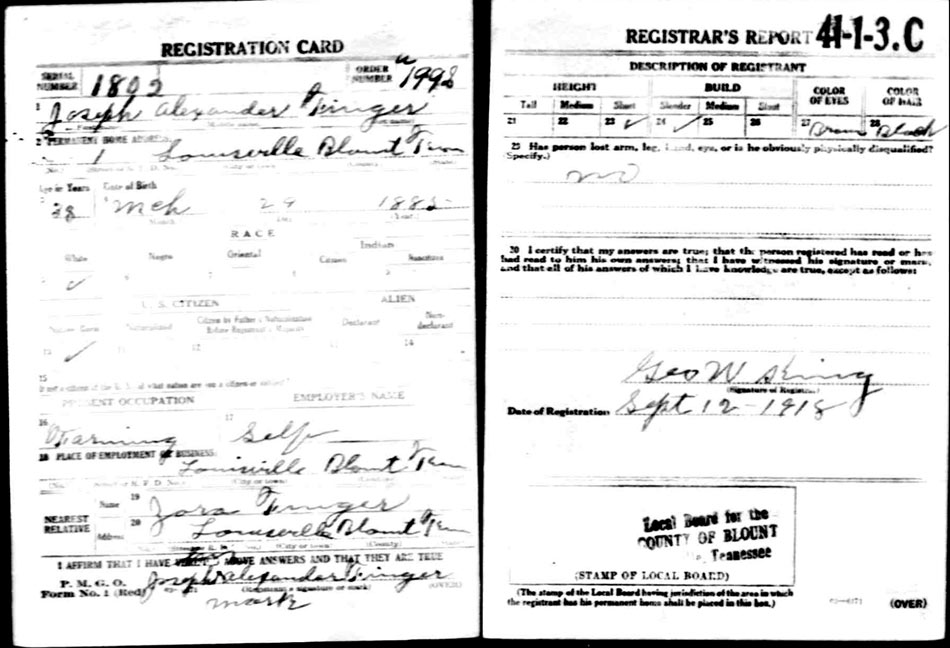 REGISTRATION CARD
SERIAL NUMBER 1802 ORDER NUMBER 1998
1 Joseph Alexander Finger
2 PERMANENT HOME ADDRESS:
1 Louisville Blount Tenn
Age in Years Date of Birth
Mch 29
RACE
White Negro Oriental Indian
Citizen
✓
U. S. CITIZEN ALIEN
Native Born Naturalized Citizen by Father's Naturalization Before Registrant's Majority Declarant Non-declarant
10 ✓ 11 12 14
15
If not a citizen of the U. S., of what nation are you a citizen or subject?
PRESENT OCCUPATION EMPLOYER'S NAME
16 Farming 17 Self
18 PLACE OF EMPLOYMENT OR BUSINESS:
Louisville Blount Tenn
(No.) (City or town)
NEAREST RELATIVE Name 19 Zora Finger
Address 20 Louisville Blount Tenn
(City or town) (County)
I AFFIRM THAT I HAVE ABOVE ANSWERS AND THAT THEY ARE TRUE
P. M. G. O.
Form No. 1 (Red) Joseph Alexander Finger
(Registrant's signature or mark) (OVER)
mark
REGISTRAR'S REPORT 41-1-3.C
DESCRIPTION OF REGISTRANT
HEIGHT BUILD COLOR OF EYES COLOR OF HAIR
Tall Medium Short Slender Medium Stout
21 22 23 ✓ 24 ✓ 25 26 27 Brown 28 Black
29 Has person lost arm, leg, hand, eye, or is he obviously physically disqualified?
Specify.)
no
30 I certify that my answers are true; that the person registered has read or has
had read to him his own answers; that I have witnessed his signature or mark,
and that all of his answers of which I have knowledge are true, except as follows:
Geo W King
(Signature of Registrar)
Date of Registration Sept 12-1918
Local Board for the
COUNTY OF BLOUNT
Tennessee
(STAMP OF LOCAL BOARD)
(The stamp of the Local Board having jurisdiction of the area in which
the registrant has his permanent home shall be placed in this box.)
(OVER)